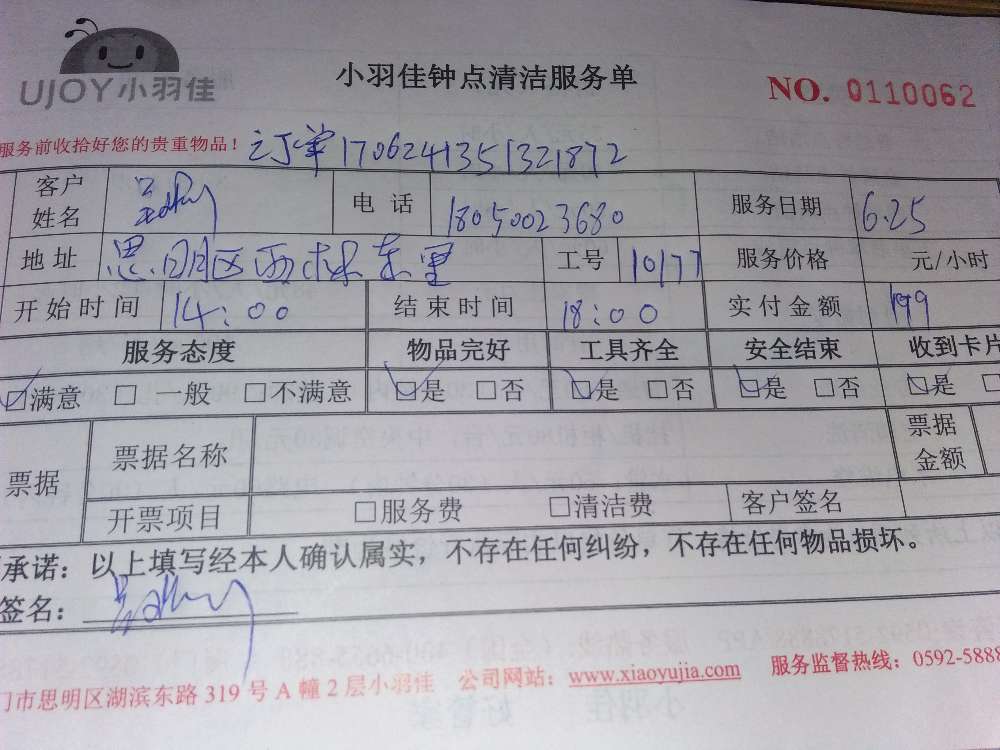 UJOY小羽佳
小羽佳钟点清洁服务单
NO. 0110062
服务前收拾好您的贵重物品！ 订单170624135132187 2
客户姓名 电话 18050023680 服务日期 6.25
地址 思明区西林东里 工号 10177 服务价格 元/小时
开始时间 14:00 结束时间 18:00 实付金额 199
服务态度 物品完好 工具齐全 安全结束 收到卡片
☑满意 □一般 □不满意 ☑是 □否 ☑是 □否 ☑是 □否 ☑是 □
票据 票据名称 票据金额
开票项目 □服务费 □清洁费 客户签名
承诺：以上填写经本人确认属实，不存在任何纠纷，不存在任何物品损坏。
签名：
门市思明区湖滨东路 319 号 A 幢 2 层小羽佳 公司网站：www.xiaoyujia.com 服务监督热线：0592-5888